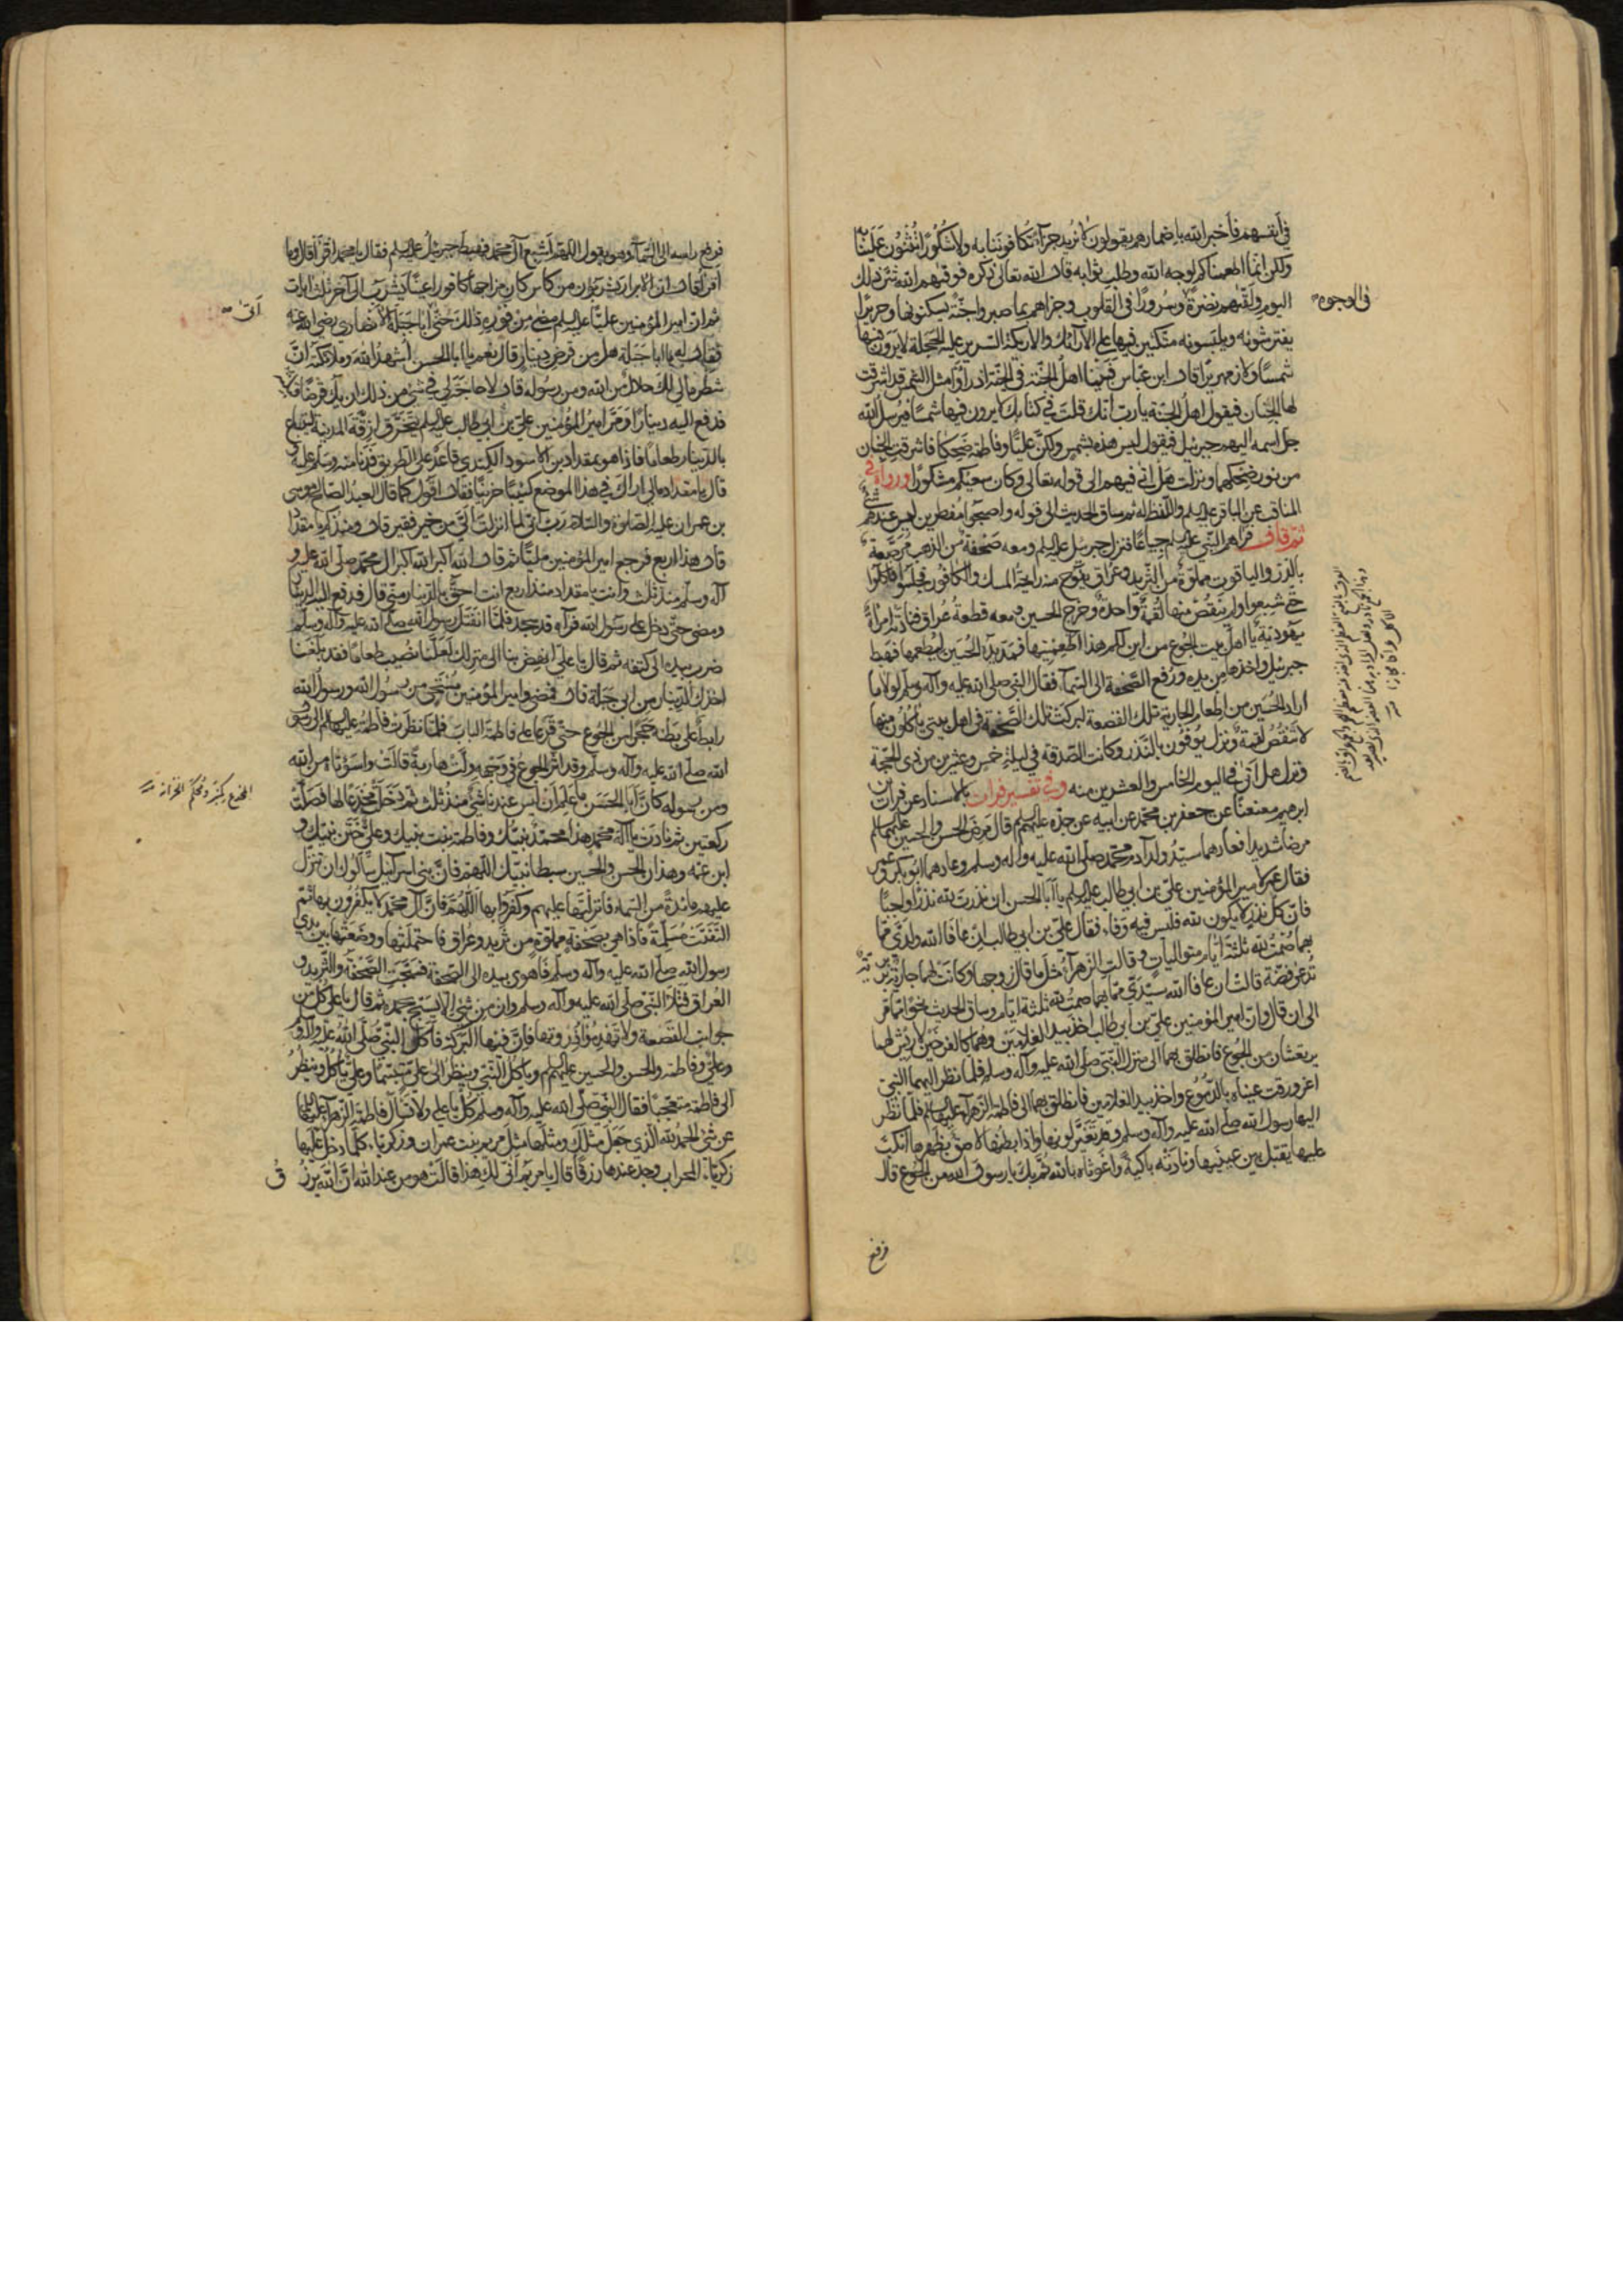 في أنفسهم فأخبر الله باضمارهم يقولون لا نريد جزآء تكافوننا به ولا شكورا تثنون علينا به
ولكن انما اطعمناكم لوجه الله وطلب ثوابه قال الله تعالى ذكره فوقيهم الله شر ذلك
اليوم ولقيهم نضرة وسرورا في القلوب وجزاهم بما صبروا جنة يسكنونها وحريرا
في الوجوه
يفترشونه ويلبسونه متكئين فيها على الآرآئك والاريكة السرير عليه الحجلة لا يرون فيها
شمسا ولا زمهريرا قال ابن عباس فبينا اهل الجنة في الجنة اذ رأوا مثل الشمس قد اشرقت
لها الجنان فيقول اهل الجنة يا رب انك قلت في كتابك لا يرون فيها شمسا فيرسل الله
جل اسمه اليهم جبرئيل فيقول ليس هذه بشمس ولكن عليا وفاطمة ضحكا فاشرقت الجنان
من نور ضحكهما ونزلت هل اتى فيهم الى قوله تعالى وكان سعيكم مشكورا ورواه في
المناقب عن الباقر عليه السلم واللفظ له ثم ساق الحديث الى قوله واصبحوا مفطرين ليس عندهم شئ
ثم قال فرآهم النبي عليه السلم جياعا فنزل جبرئيل عليه السلم ومعه صحفة من الذهب مرصعة
بالدر والياقوت مملوة من الثريد وعراق يفوح منه رايحة المسك والكافور فجلسوا فاكلوا
حتى شبعوا ولم تنقص منها لقمة واحدة وخرج الحسين ومعه قطعة عراق فنادته امرأة
يهودية يا اهل بيت الجوع من اين لكم هذا اطعمنيها فمد يده الحسين ليطعمها فهبط
جبرئيل واخذها من يده ورفع الصحفة الى السمآء فقال النبي صلى الله عليه وآله وسلم لولا ما
اراد الحسين من اطعام الجارية تلك القصعة لبركت تلك الصحفة في اهل بيتي ياكلون منها
لا تنقص لقمة ونزل يوفون بالنذر وكانت الصدقة في ليلة خمس وعشرين من ذي الحجة
ونزل هل اتى في اليوم الخامس والعشرين منه وفي تفسير فرات بالاسناد عن فرات بن
ابرهيم معنعنا عن جعفر بن محمد عن ابيه عن جده عليهم السلم قال مرض الحسن والحسين عليهما السلم
مرضا شديدا فعادهما سيد ولد آدم محمد صلى الله عليه وآله وسلم وعادهما ابوبكر وعمر
فقال عمر لامير المؤمنين علي بن ابي طالب عليه السلم يا ابا الحسن ان نذرت لله نذرا واجبا
فان كل نذر لا يكون لله فليس فيه وفاء فقال علي بن ابي طالب ان عافا الله ولدي مما
بهما صمت لله ثلثة ايام متواليات وقالت الزهرآء مثل ما قال زوجها وكانت لهما جارية بربرية
تدعى فضة قالت ان عافا الله سيدي مما بهما صمت لله ثلثة ايام وساق الحديث نحوا مما مر
الى ان قال وان امير المؤمنين علي بن ابي طالب اخذ بيد الغلامين وهما كالفرخين لا ريش لهما
يرتعشان من الجوع فانطلق بهما الى منزل النبي صلى الله عليه وآله وسلم فلما نظر اليهما النبي
اغرورقت عيناه بالدموع واخذ بيد الغلامين فانطلق بهما الى فاطمة الزهرآء عليها السلم فلما نظر
اليها رسول الله صلى الله عليه وآله وسلم وقد تغير لونها واذا بطنها لاصق بظهرها انكب
عليها يقبل بين عينيها ونادته باكية واغوثاه بالله ثم بك يا رسول الله من الجوع قال
فرفع
فرفع راسه الى السمآء وهو يقول اللهم اشبع آل محمد فهبط جبرئيل عليه السلم فقال يا محمد اقرأ قال وما
اقرأ قال ان الابرار يشربون من كاس كان مزاجها كافورا عينا يشرب الى آخر ثلث ايات
ثم ان امير المؤمنين عليا عليه السلم مضى من فوره ذلك حتى ابا جبلة الانصاري رضي الله عنه
اتى
فقال له يا ابا جبلة هل من قرض دينار قال نعم يا ابا الحسن اشهد الله وملائكته ان
شطر مالي لك حلال من الله ومن رسوله قال لا حاجة لي في شئ من ذلك ان يك قرضا قبلته
فدفع اليه دينارا ومر امير المؤمنين علي بن ابي طالب عليه السلم يتخرق ازقة المدينة ليبتاع
بالدينار طعاما فاذا هو بمقداد بن الاسود الكندي قاعد على الطريق فدنا منه وسلم عليه و
قال يا مقداد مالي اراك في هذا الموضع كئيبا حزينا فقال اقول كما قال العبد الصالح موسى
بن عمران عليه الصلوة والسلام رب اني لما انزلت الي من خير فقير قال ومنذ كم يا مقداد
قال هذا اربع فرجع امير المؤمنين مليا ثم قال الله اكبر الله اكبر ال محمد صلى الله عليه و
آله وسلم منذ ثلث وانت يا مقداد منذ اربع انت احق بالدينار مني قال فدفع اليه الدينار
ومضى حتى دخل على رسول الله فرآه قد سجد فلما انفتل رسول الله صلى الله عليه وآله وسلم
ضرب بيده الى كتفه ثم قال يا علي انهض بنا الى منزلك لعلنا نصيب طعاما فقد بلغنا
اخذك الدينار من ابي جبلة قال فمضى وامير المؤمنين مستحي من رسول الله ورسول الله
رابط على بطنه حجرا من الجوع حتى قرعا على فاطمة الباب فلما نظرت فاطمة عليها السلم الى رسول
الله صلى الله عليه وآله وسلم وقد اثر الجوع في وجهه ولت هاربة قالت واسوأتا من الله
ومن رسوله كأن ابا الحسن ما علم ان ليس عندنا شئ منذ ثلث ثم دخلت مخدعا لها فصلت
ركعتين ثم نادت يا اله محمد هذا محمد نبيك وفاطمة بنت نبيك وعلي ختن نبيك و
ابن عمه وهذان الحسن والحسين سبطا نبيك اللهم فان بني اسرائيل سألوك ان تنزل
عليهم مائدة من السماء فانزلتها عليهم وكفروا بها اللهم فان آل محمد لا يكفرون بها ثم
التفتت مسلمة فاذا هي بصحفة مملوة من ثريد وعراق فاحتملتها ووضعتها بين يدي
رسول الله صلى الله عليه وآله وسلم فاهوى بيده الى الصحفة فسبحت الصحفة والثريد و
العراق فتلا النبي صلى الله عليه وآله وسلم وان من شئ الا يسبح بحمده ثم قال يا علي كل من
جوانب القصعة ولا تهدموا ذروتها فان فيها البركة فاكل النبي صلى الله عليه وآله وسلم
وعلي وفاطمة والحسن والحسين عليهم السلم وياكل النبي وينظر الى علي متبسما وعلي ياكل وينظر
الى فاطمة متعجبا فقال النبي صلى الله عليه وآله وسلم كل يا علي ولا تسأل فاطمة الزهرآء عليها السلم
عن شئ الحمد لله الذي جعل مثلك ومثلها مثل مريم بنت عمران وزكريا كلما دخل عليها
زكريا المحراب وجد عندها رزقا قال يا مريم انى لك هذا قالت هو من عند الله ان الله يرزق